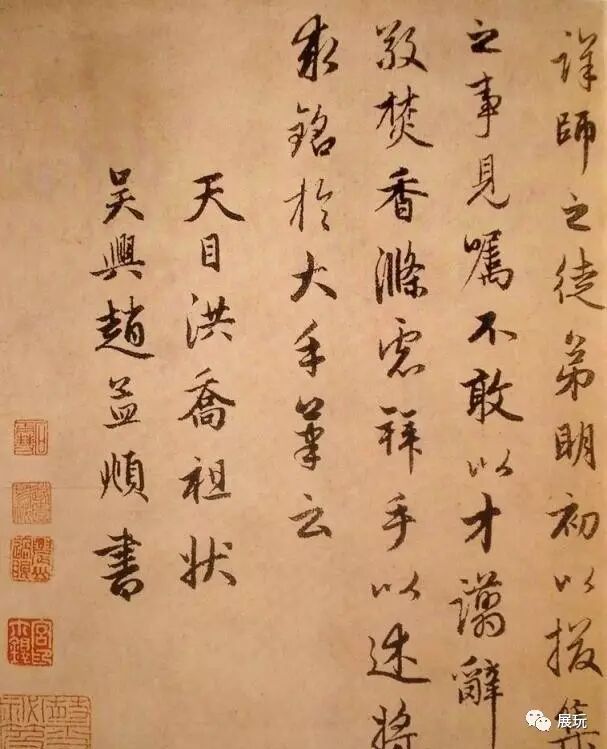 詳師之徒弟明初以掇集
之事見嘱不敢以才譾辭
敬焚香滌慮拜手以述將
求銘於大手筆云
天目洪喬祖狀
吳興趙孟頫書
展玩